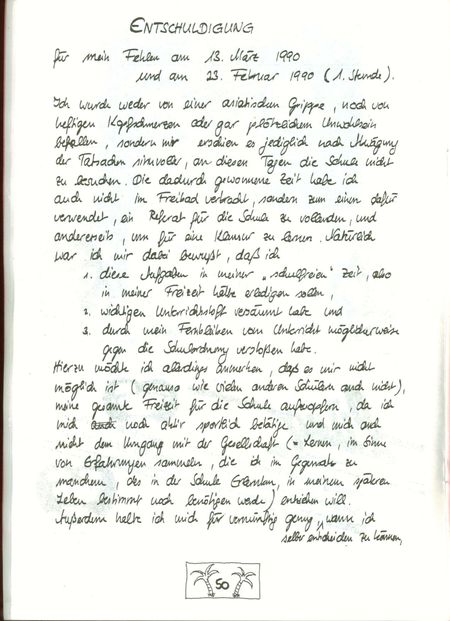 ENTSCHULDIGUNG
für mein Fehlen am 13. März 1990
und am 23. Februar 1990 (1. Stunde).
Ich wurde weder von einer asiatischen Grippe, noch von
heftigen Kopfschmerzen oder gar plötzlichem Unwohlsein
befallen, sondern mir erschien es lediglich nach Abwägung
der Tatsachen sinnvoller, an diesen Tagen die Schule nicht
zu besuchen. Die dadurch gewonnene Zeit habe ich
auch nicht im Freibad verbracht, sondern zum einen dafür
verwendet, ein Referat für die Schule zu vollenden, und
andererseits, um für eine Klausur zu lernen. Natürlich
war ich mir dabei bewußt, daß ich
1. diese Aufgaben in meiner "schulfreien" Zeit, also
in meiner Freizeit hätte erledigen sollen,
2. wichtigen Unterrichtsstoff versäumt habe und
3. durch mein Fernbleiben vom Unterricht möglicherweise
gegen die Schulordnung verstoßen habe.
Hierzu möchte ich allerdings anmerken, daß es mir nicht
möglich ist (genauso wie vielen anderen Schülern auch nicht),
meine gesamte Freizeit für die Schule aufzuopfern, da ich
mich auch noch aktiv sportlich betätige und mich auch
nicht dem Umgang mit der Gesellschaft (= Lernen, im Sinne
von Erfahrungen sammeln, die ich im Gegensatz zu
manchem, das in der Schule Gelernten, in meinem späteren
Leben bestimmt noch benötigen werde) entziehen will.
Außerdem halte ich mich für vernünftig genug, wann ich
selber entscheiden zu können,
50